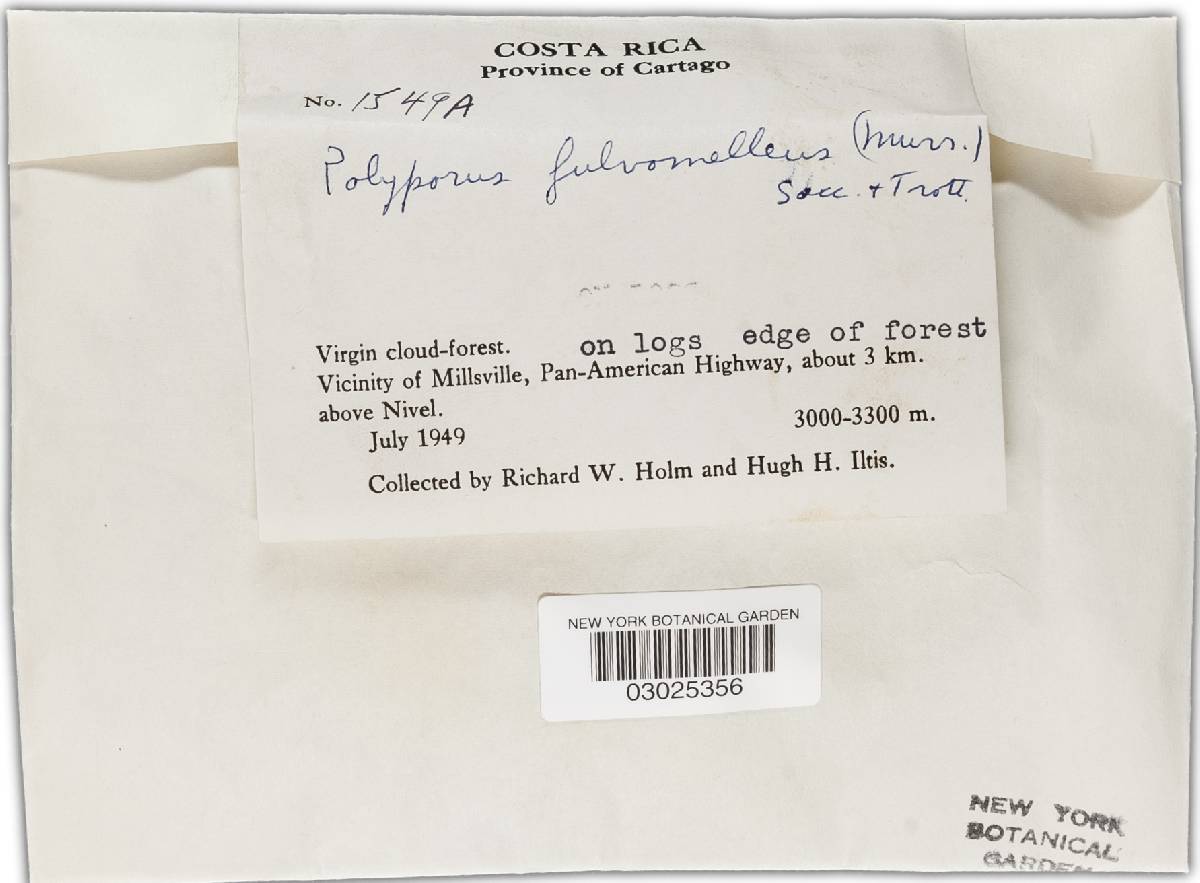 COSTA RICA
Province of Cartago
No. 1549A
Polyporus fulvomelleus (Murr.)
Sacc. + Trott.
Virgin cloud-forest. on logs edge of forest
Vicinity of Millsville, Pan-American Highway, about 3 km.
above Nivel.
July 1949 3000-3300 m.
Collected by Richard W. Holm and Hugh H. Iltis.
NEW YORK BOTANICAL GARDEN
03025356
NEW YORK
BOTANICAL
GARDEN